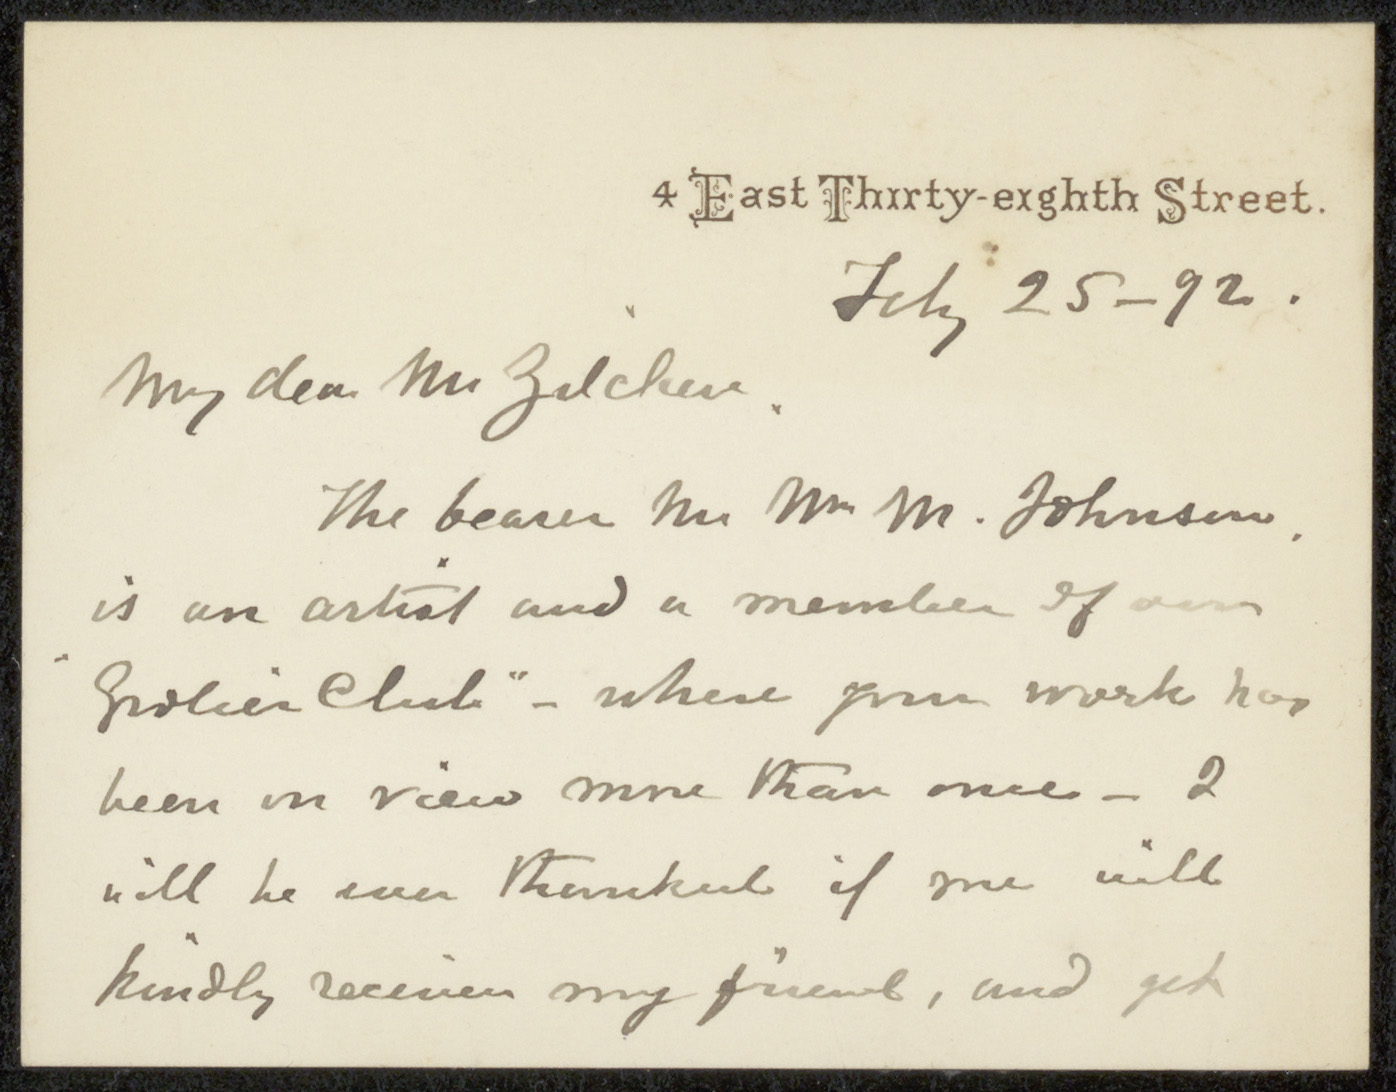 4 East Thirty-eighth Street.
July 25-92.
My dear Mr Zilcken.
The bearer Mr Wm M. Johnson,
is an artist and a member of our
"Grolier Club" - where your work has
been on view more than once - I
will be ever thankful if will
kindly receive my friend, and get